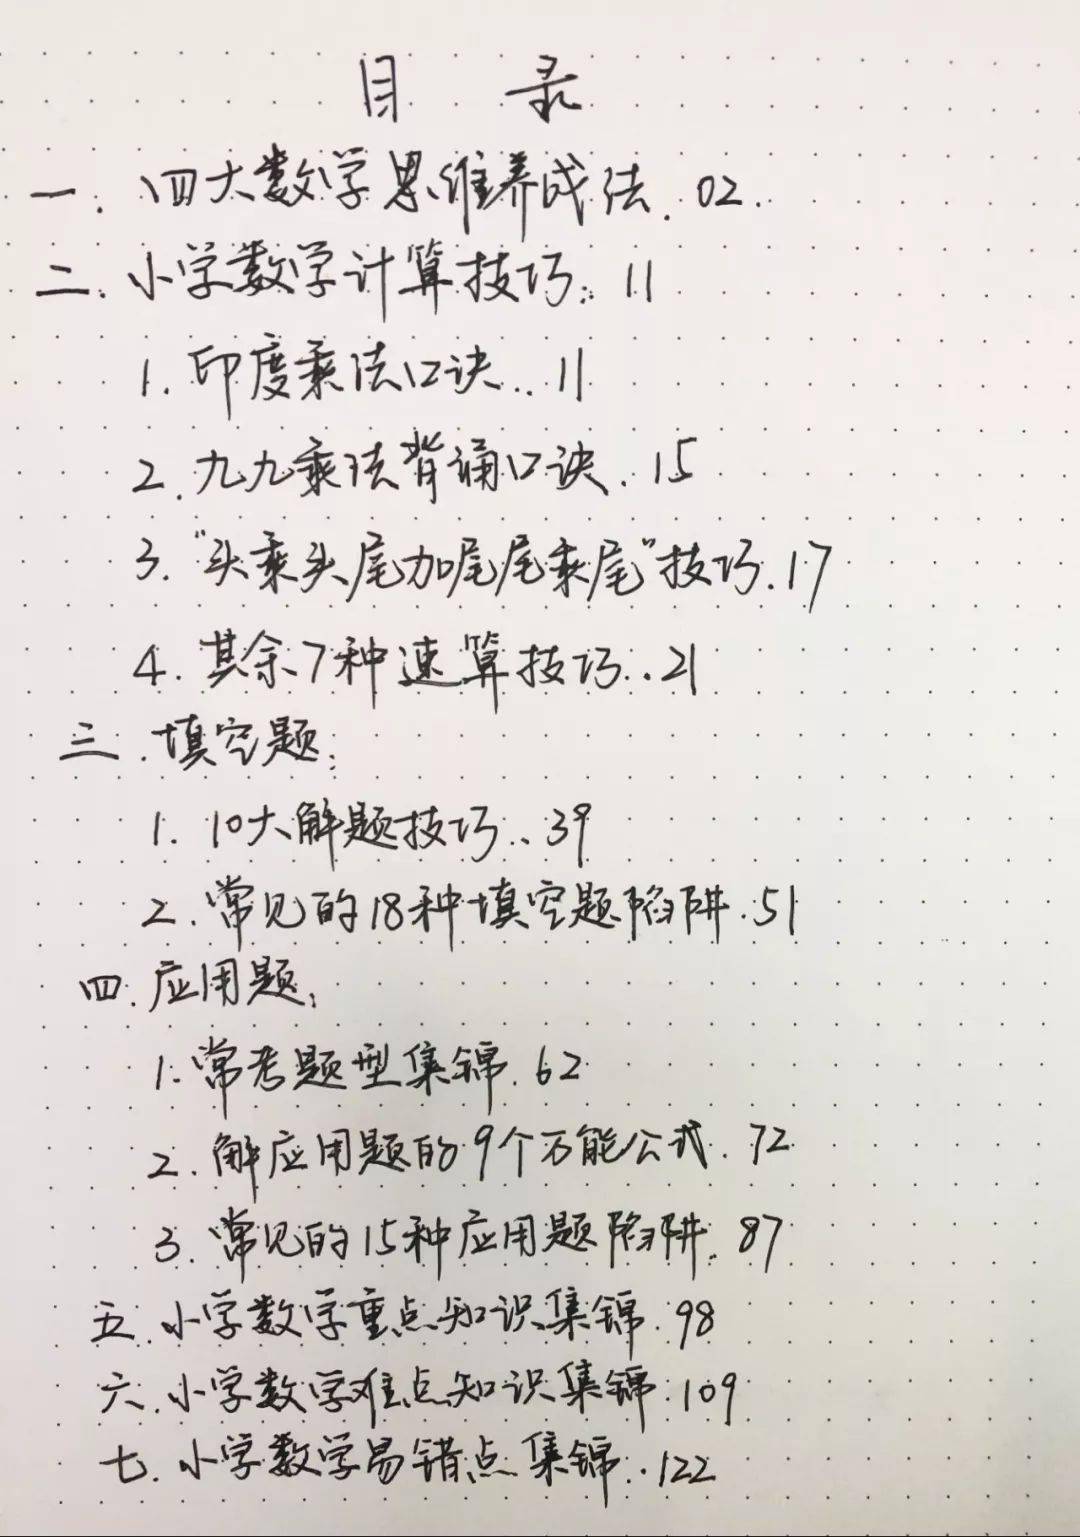 目 录
一. 四大数学思维养成法. 02.
二. 小学数学计算技巧: 11
1. 印度乘法口诀.. 11
2. 九九乘法背诵口诀. 15
3. "头乘头尾加尾尾乘尾"技巧. 17
4. 其余7种速算技巧.. 21
三. 填空题:
1. 10大解题技巧.. 39
2. 常见的18种填空题陷阱. 51
四. 应用题:
1. 常考题型集锦. 62
2. 解应用题的9个万能公式. 72
3. 常见的15种应用题陷阱. 87
五. 小学数学重点知识集锦. 98
六. 小学数学难点知识集锦. 109
七. 小学数学易错点集锦.. 122